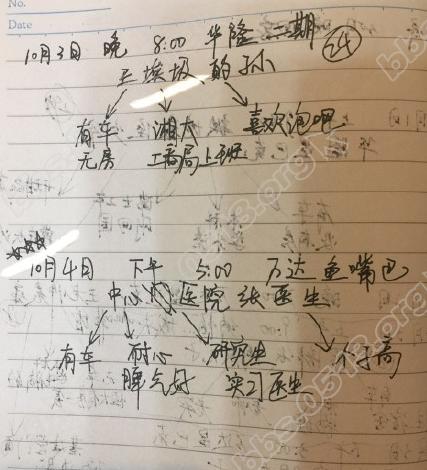 No.
Date
10月3日 晚 8:00 华隆二期
24
王埃圾的孙
有车 湘大 喜欢泡吧
无房 工商局上班
☆☆☆
10月4日 下午 5:00 万达鱼嘴巴
中心医院张医生
有车 耐心 研究生 个子高
脾气好 实习医生
bbs.0513.org